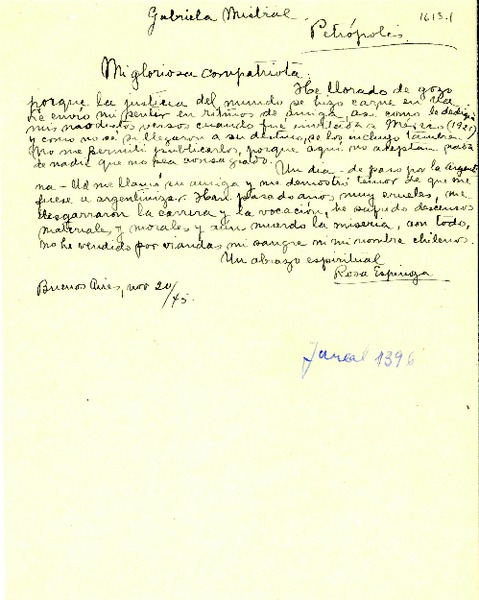 Gabriela Mistral.
1613.1
Petrópolis.
Mi gloriosa compatriota:
He llorado de gozo
porque la justicia del mundo se hizo carne en Ud.
Le envío mi sentir en ritmos de amiga, así como le dediqué
mis modestos versos cuando fué invitada a México (1921)
y como no sé si llegaron a su destino, se los incluyo también.
No me permití publicarlos, porque aquí no aceptan nada
de nadie que no sea consagrado.
Un día - de paso por la Argenti-
na - Ud. me llamó su amiga y me demostró temor de que me
fuese a argentinizar. Han pasado años muy crueles, me
desgarraron la carrera y la vocación, he sufrido descensos
materiales y morales y aún muerdo la miseria, con todo,
no he vendido por viandas mi sangre ni mi nombre chilenos.
Un abrazo espiritual
Rosa Espinoza
Buenos Aires, nov 20/45.
1396